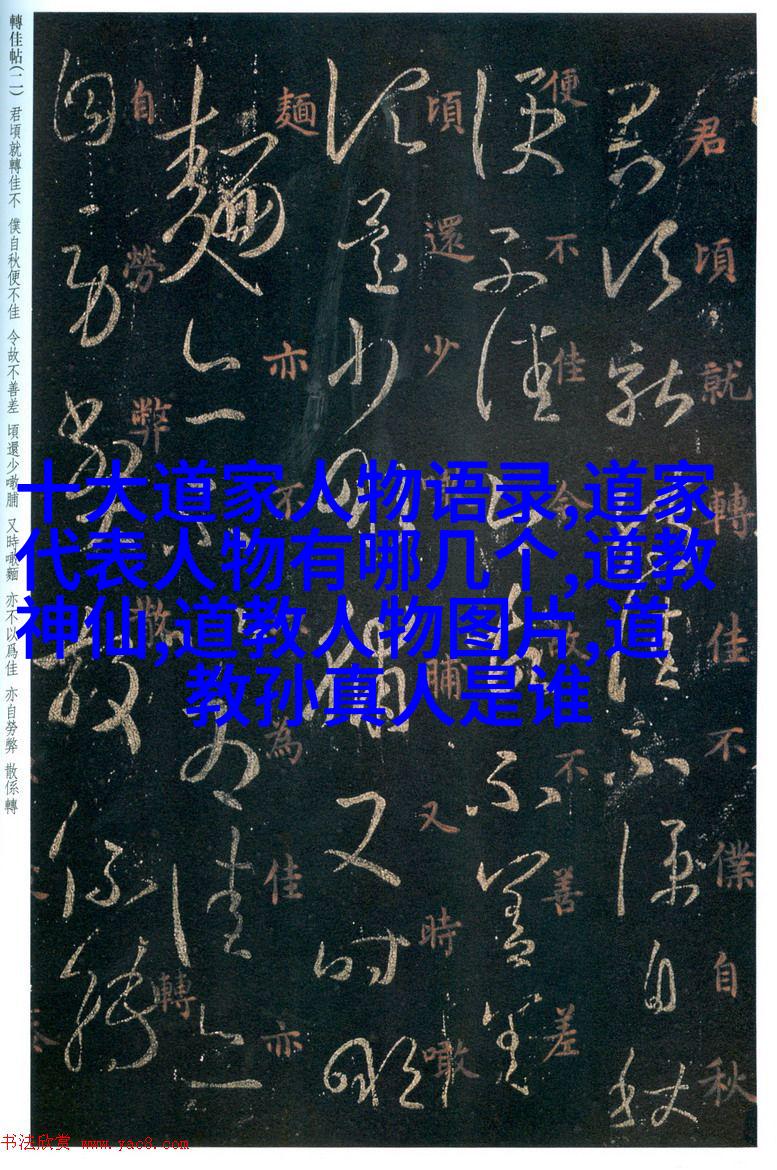 轉佳帖(二) 君頃就轉佳不 僕自秋便不佳 令故不善差 頃還少噉脯 又時噉麵 亦不以爲佳 亦自勞弊 散係轉
君頃就轉佳不僕自秋
便不佳令故不善差
頃還少噉脯又時噉
麵亦不以為佳亦
自勞弊散係轉
十大道家人物语录,道家
代表人物有哪几个,道教
神仙,道教人物图片,道
教孙真人是谁
书法欣赏 www.yac8.com